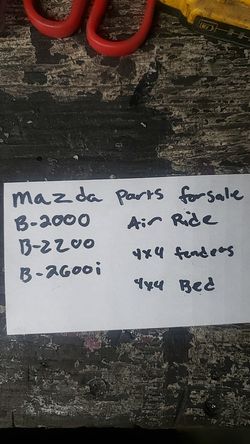 Mazda Parts forsale
B-2000 Air Ride
B-2200 4x4 fenders
B-2600i 4x4 Bed